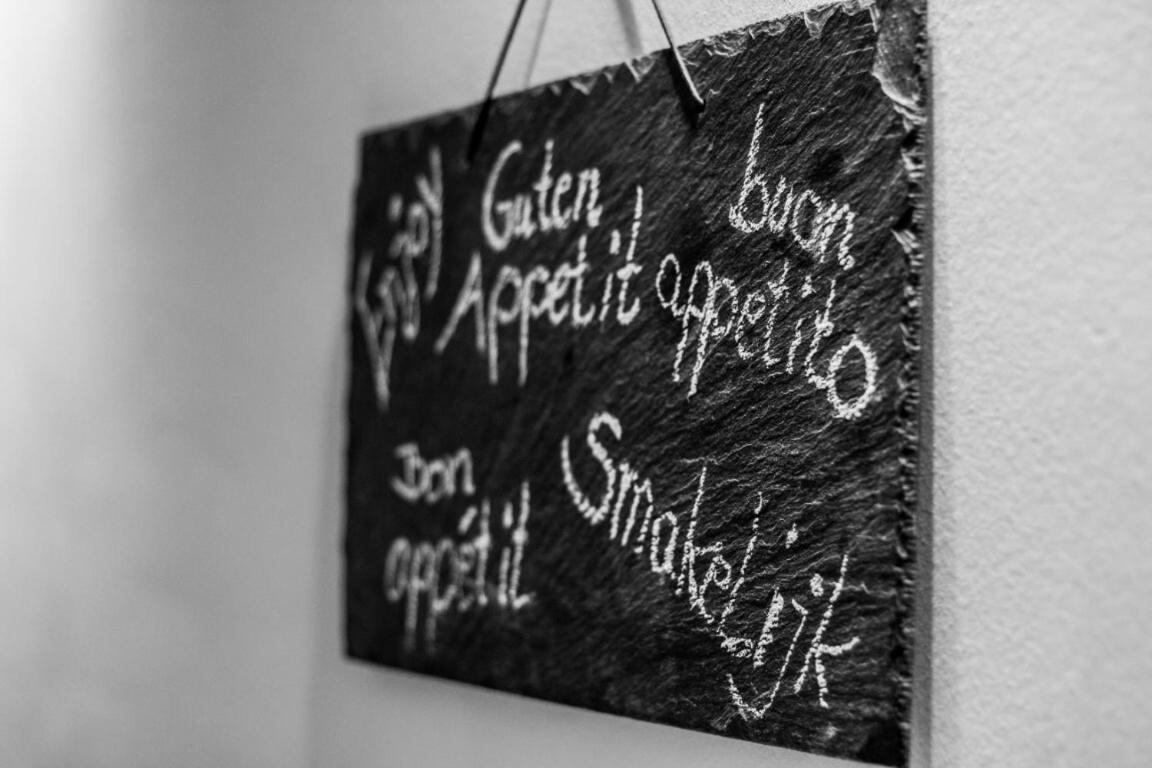 Enjoy
Guten
Appetit
buon
appetito
Bon
appétit
Smakelijk